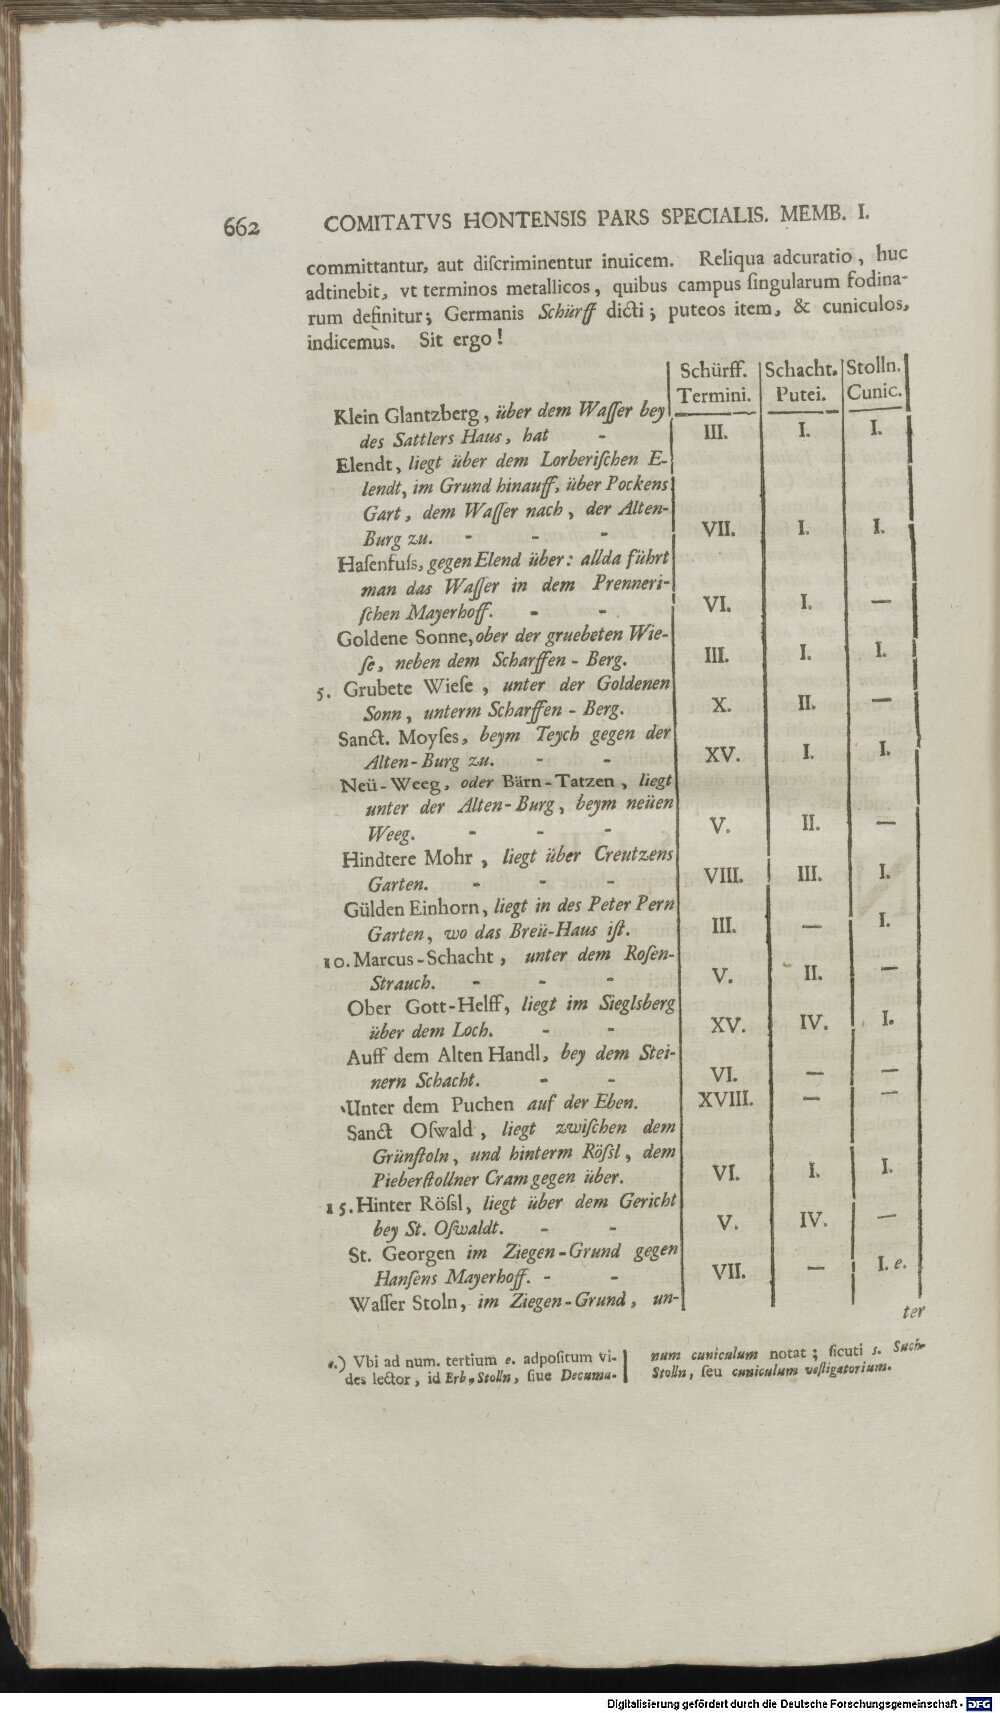 662 COMITATVS HONTENSIS PARS SPECIALIS. MEMB. I.
committantur, aut diſcriminentur inuicem. Reliqua adcuratio, huc
adtinebit, vt terminos metallicos, quibus campus ſingularum fodina-
rum definitur; Germanis Schürff dicti; puteos item, & cuniculos,
indicemùs. Sit ergo!
Schürff. Schacht. Stolln.
Termini. Putei. Cunic.
Klein Glantzberg, über dem Waſſer bey
des Sattlers Haus, hat - III. I. I.
Elendt, liegt über dem Lorberiſchen E-
lendt, im Grund hinauff, über Pockens
Gart, dem Waſſer nach, der Alten-
Burg zu. - - - VII. I. I.
Haſenfuſs, gegen Elend über: allda führt
man das Waſſer in dem Prenneri-
ſchen Mayerhoff. - - VI. I. —
Goldene Sonne, ober der gruebeten Wie-
ſe, neben dem Scharffen-Berg. III. I. I.
5. Grubete Wieſe, unter der Goldenen
Sonn, unterm Scharffen-Berg. X. II. —
Sanct. Moyſes, beym Teych gegen der
Alten-Burg zu. - - XV. I. I.
Neü-Weeg, oder Bärn-Tatzen, liegt
unter der Alten-Burg, beym neüen
Weeg. - - - V. II. —
Hindtere Mohr, liegt über Creutzens
Garten. - - - VIII. III. I.
Gülden Einhorn, liegt in des Peter Pern
Garten, wo das Breü-Haus iſt. III. — I.
10. Marcus-Schacht, unter dem Roſen-
Strauch. - - - V. II. —
Ober Gott-Helff, liegt im Sieglsberg
über dem Loch. - - XV. IV. I.
Auff dem Alten Handl, bey dem Stei-
nern Schacht. - - VI. — —
Unter dem Puchen auf der Eben. XVIII. — —
Sanct Oſwald, liegt zwiſchen dem
Grünſtoln, und hinterm Röſsl, dem
Pieberſtollner Cram gegen über. VI. I. I.
15. Hinter Röſsl, liegt über dem Gericht
bey St. Oſwaldt. - - V. IV. —
St. Georgen im Ziegen-Grund gegen
Hanſens Mayerhoff. - - VII. — I. e.
Waſſer Stoln, im Ziegen-Grund, un-
ter
e.) Vbi ad num. tertium e. adpoſitum vi-
des lector, id Erb-Stolln, ſiue Decuma-
num cuniculum notat; ſicuti s. Such-
Stolln, ſeu cuniculum veſligatorium.
Digitalisierung gefördert durch die Deutsche Forschungsgemeinschaft - DFG